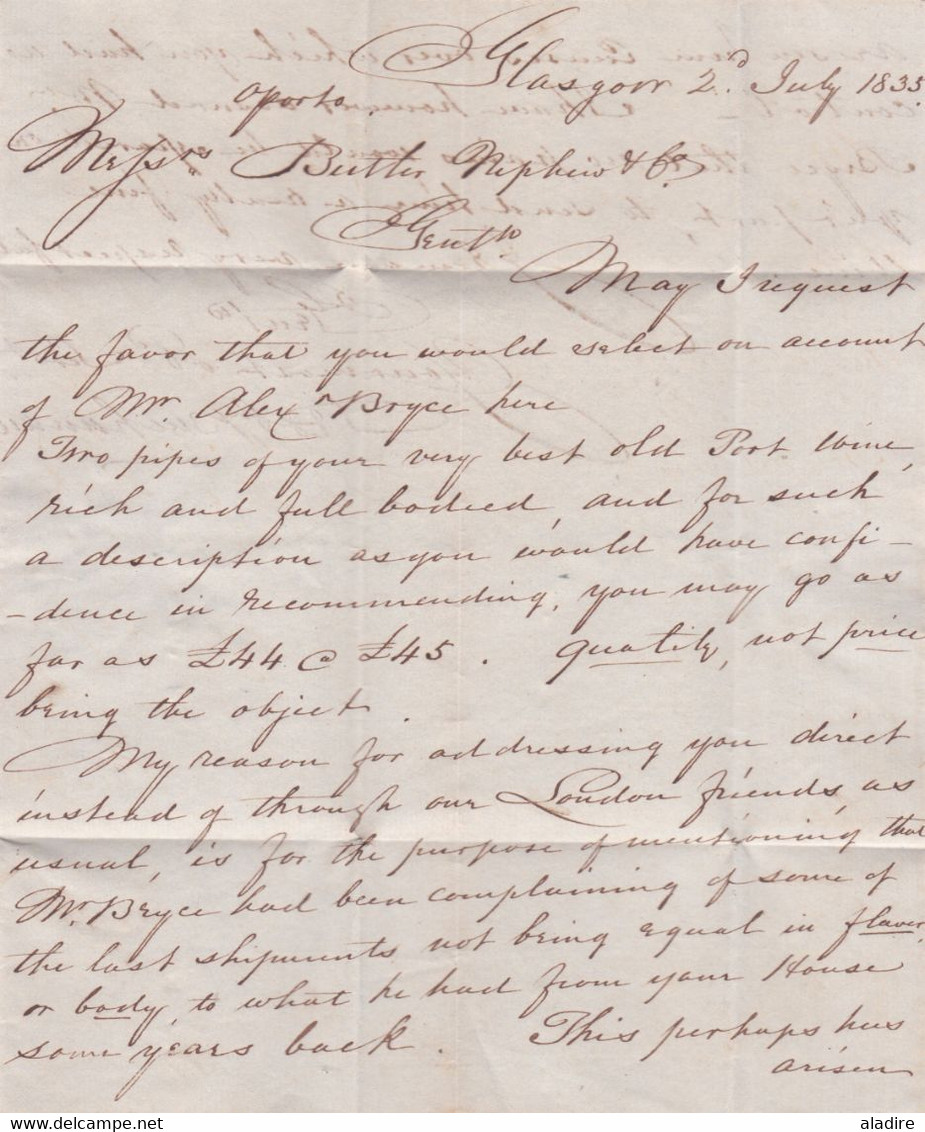 Glasgow 2d. July 1835.
Oporto.
Messrs Butler Nephew & Co
Gentn
May I request
the favor that you would select on account
of Mr Alexr Bryce here
Two pipes of your very best old Port Wine,
rich and full bodied, and for such
a description as you would have confi-
-dence in recommending, you may go as
far as £44 @ £45. quality, not price
being the object.
My reason for addressing you direct
instead of through our London friends, as
usual, is for the purpose of mentioning that
Mr. Bryce had been complaining of some of
the last shipments not being equal in flavor,
or body, to what he had from your House
some years back. This perhaps has
arisen
aladire